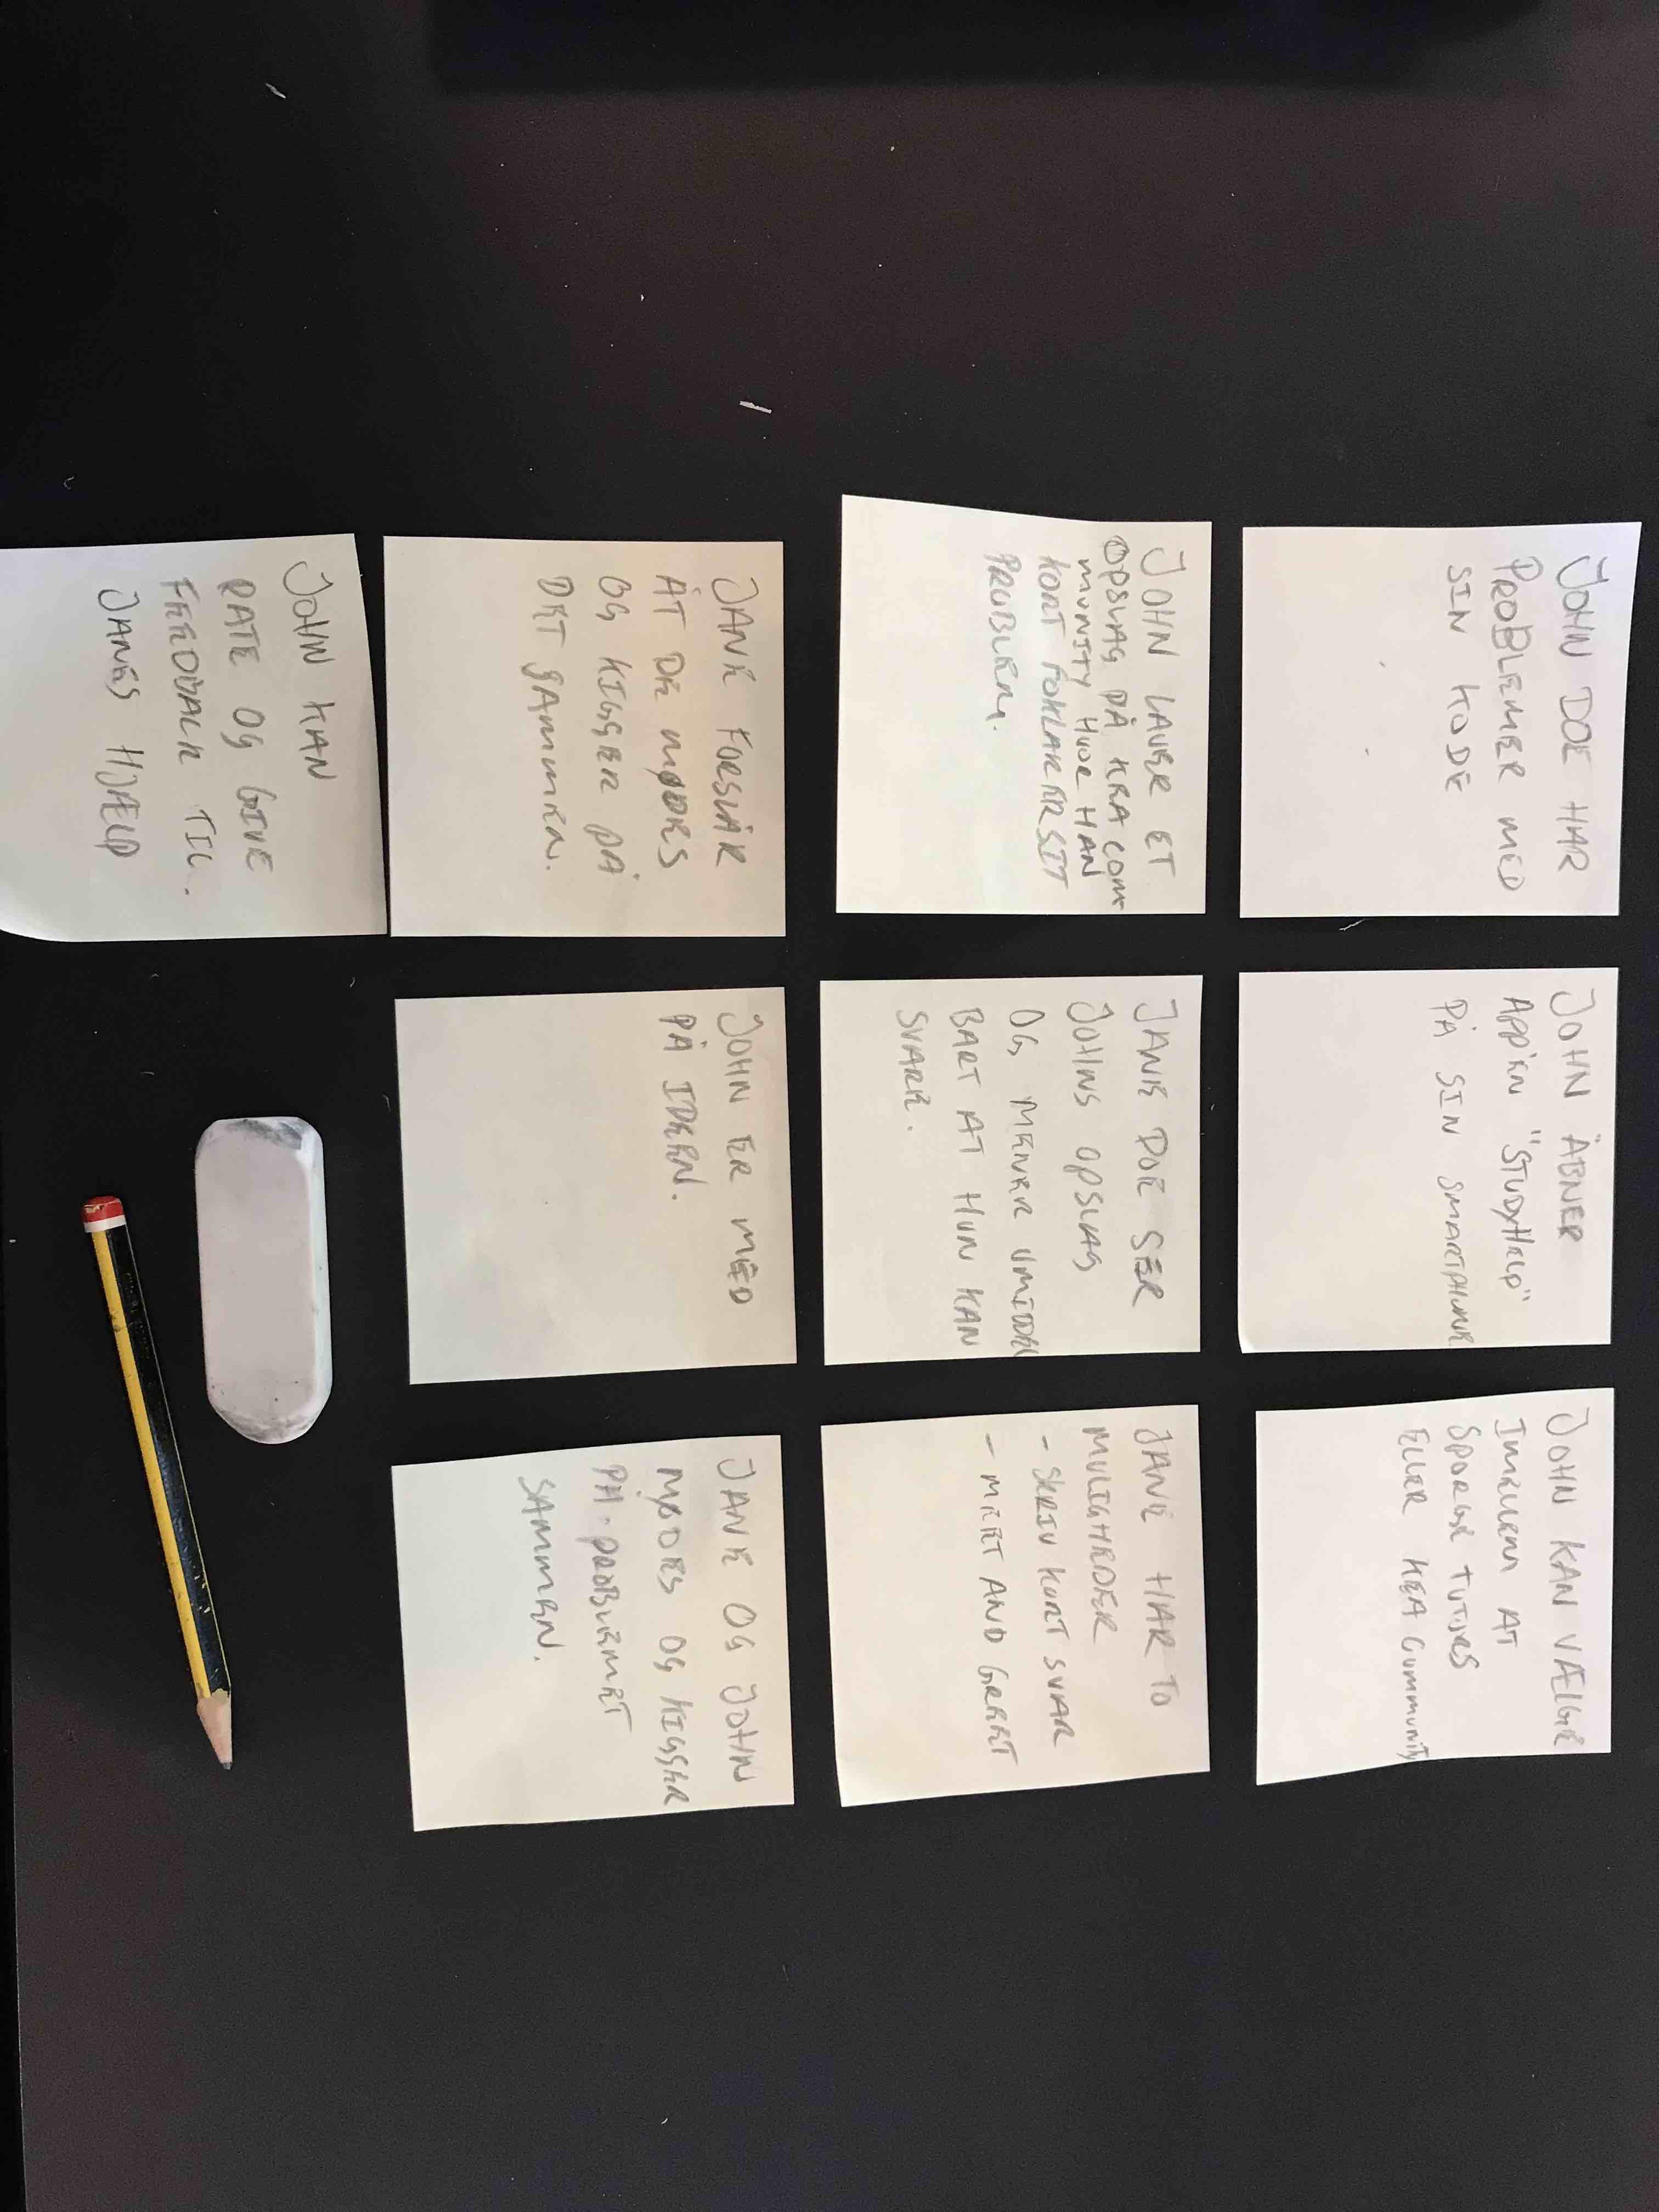 JOHN DOE HAR
PROBLEMER MED
SIN KODE
JOHN ÅBNER
APP'EN "STUDYHELP"
PÅ SIN SMARTPHONE
JOHN KAN VÆLGE
IMELLEM AT
SPØRGE TUTORS
ELLER KEA COMMUNITY
JOHN LAVER ET
OPSLAG PÅ KEA COM-
MUNITY HVOR HAN
KORT FORKLARER SIT
PROBLEM.
JANE DOE SER
JOHNS OPSLAG
OG MENER UMIDDEL
BART AT HUN KAN
SVARE.
JANE HAR TO
MULIGHEDER
- SKRIV KORT SVAR
- MEET AND GREET
JANE FORSLÅR
AT DE MØDES
OG KIGGER PÅ
DET SAMMEN.
JOHN ER MED
PÅ IDEEN.
JANE OG JOHN
MØDES OG KIGGER
PÅ PROBLEMET
SAMMEN.
JOHN KAN
RATE OG GIVE
FEEDBACK TIL
JANES HJÆLP